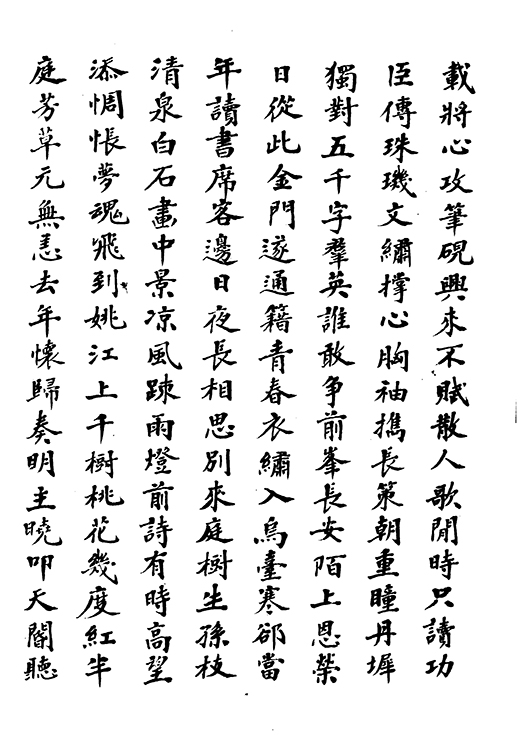 載將心攻筆硯興來不賦散人歌閒時只讀功
臣傳珠璣文繡撑心胸袖擕長策朝重瞳丹墀
獨對五千字羣英誰敢争前峯長安陌上恩榮
日從此金門遂通籍青春衣繡入烏臺寒郤當
年讀書席客邊日夜長相思別來庭樹生孫枝
清泉白石畫中景凉風踈雨燈前詩有時高望
添惆悵夢魂飛到姚江上千樹桃花幾度紅半
庭芳草元無恙去年懷歸奏明主曉叩天閽聽